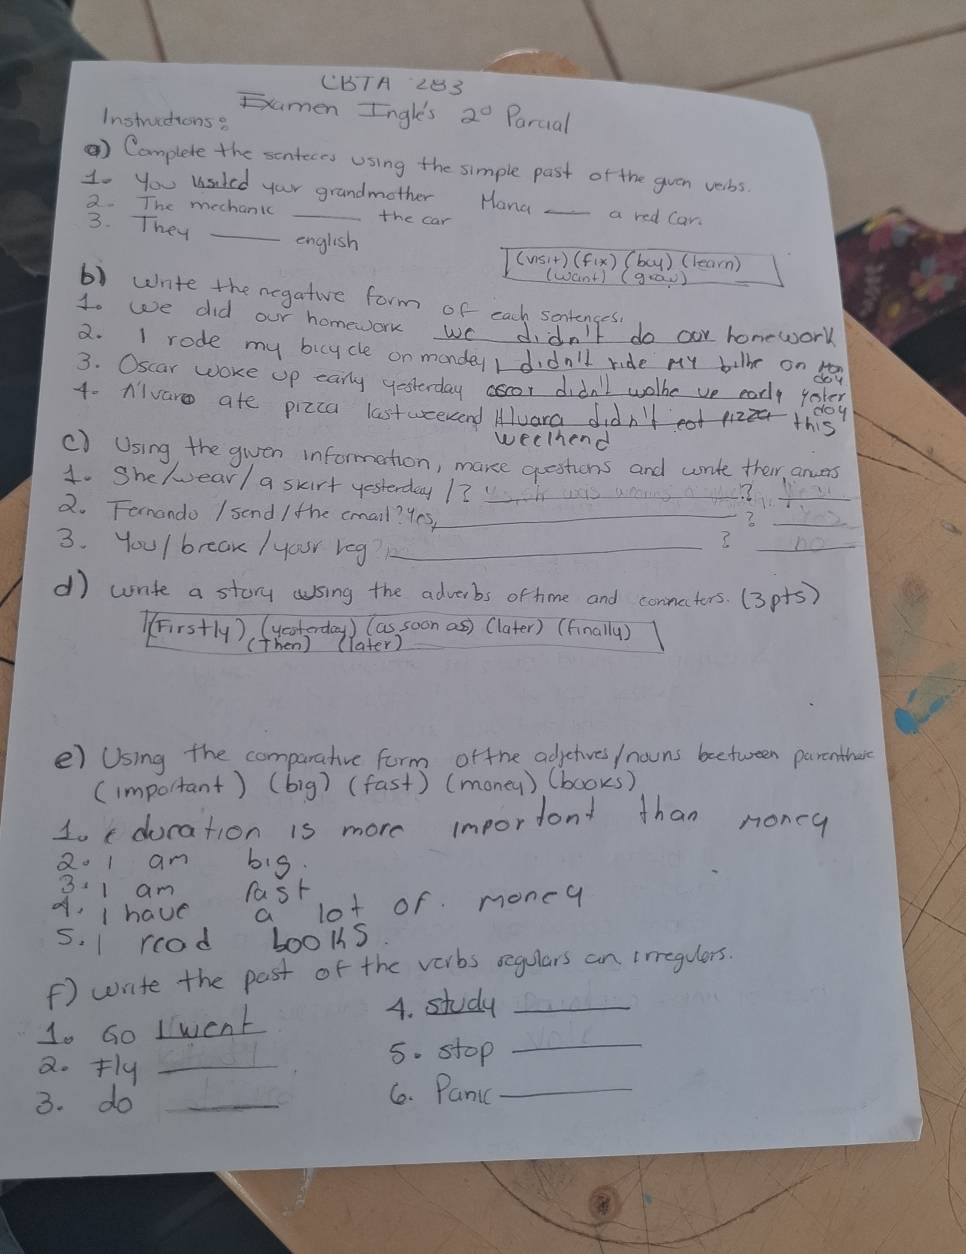 CBTA 283
Examen Inglés 2° Parcial
Instructions:
a) Complete the senteces using the simple past of the given verbs.
1. You visited your grandmother Maria ___ a red car.
2. The mechanic ___ the car
3. They ___ english
(visit) (fix) (buy) (learn)
(want) (grow)
b) Write the negative form of each sentences.
1. We did our homework We didn't do our homework
2. I rode my bicycle on monday I didn't ride My bike on Mon
day
3. Oscar woke up early yesterday oscar didn't wolhe up early yester
day
4. Alvaro ate pizza last weekend Alvara didn't eat pizza this
weelhend
c) Using the given information, make questions and write their anwers
1. She/wear/a skirt yesterday /? ___? ___
2. Fernando / send / the email? Yes, ___? Yes
3. You / break / your leg? no ___? no
d) write a story using the adverbs of time and connectors. (3pts)
(Firstly) (yesterday) (as soon as) (later) (finally)
(then) (later)
e) Using the comparative form of the adjetives/nouns beetween parenthesis
(important) (big) (fast) (money) (books)
1. education is more importont than money
2. I am big.
3. I am fast
4. I have a lot of. money
5. I read books.
f) write the past of the verbs regulars an irregulers.
1. Go went
4. study ___
2. Fly ___
5. stop ___
3. do ___
6. Panic ___